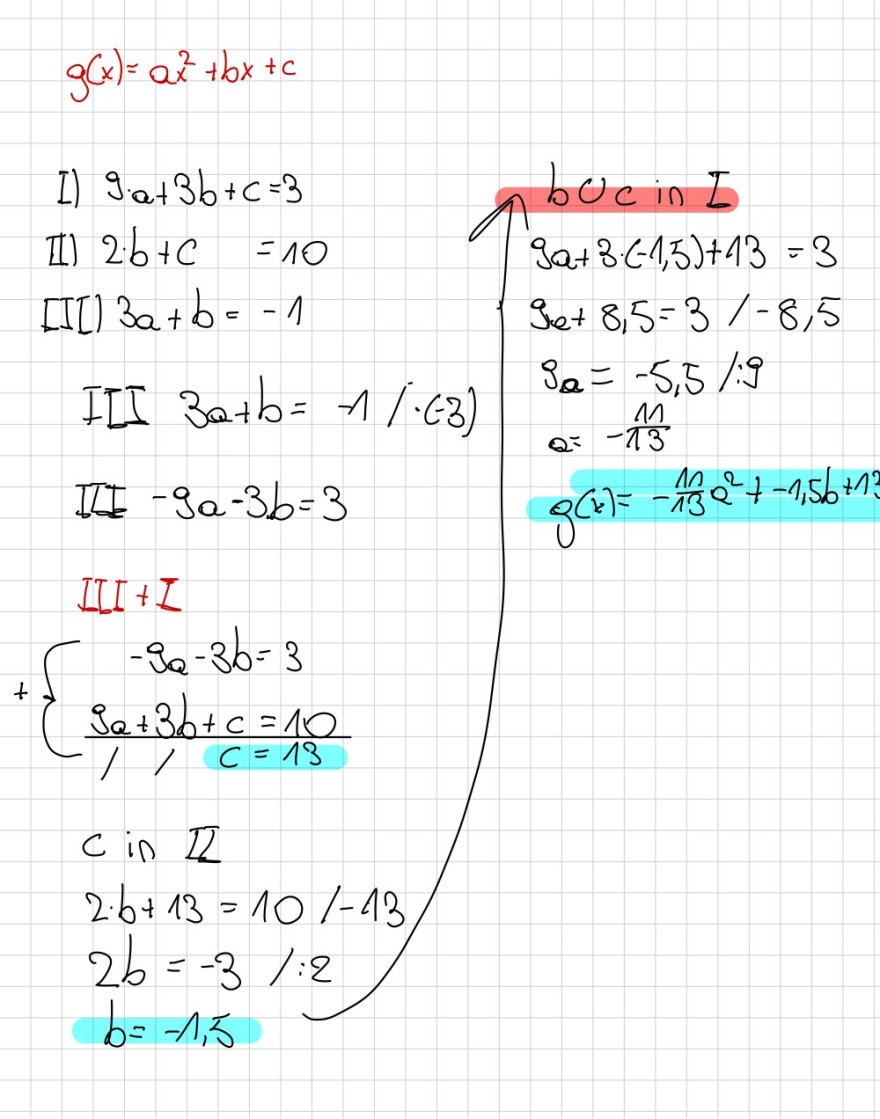 g(x)= ax² +bx +c
I) 9·a+3b+c=3
II) 2·b+c =10
III) 3a+b= -1
III 3a+b= -1 /·(-3)
III -9a-3b=3
III+I
-9a-3b= 3
+
9a+3b+c =10
/ / c = 13
c in II
2·b+ 13 = 10 /-13
2b = -3 /:2
b= -1,5
b U c in I
9a+3·(-1,5)+13 = 3
9a+ 8,5=3 /-8,5
9a= -5,5 /:9
a= -11/13
g(x)= -11/13 a²+ -1,5b+13